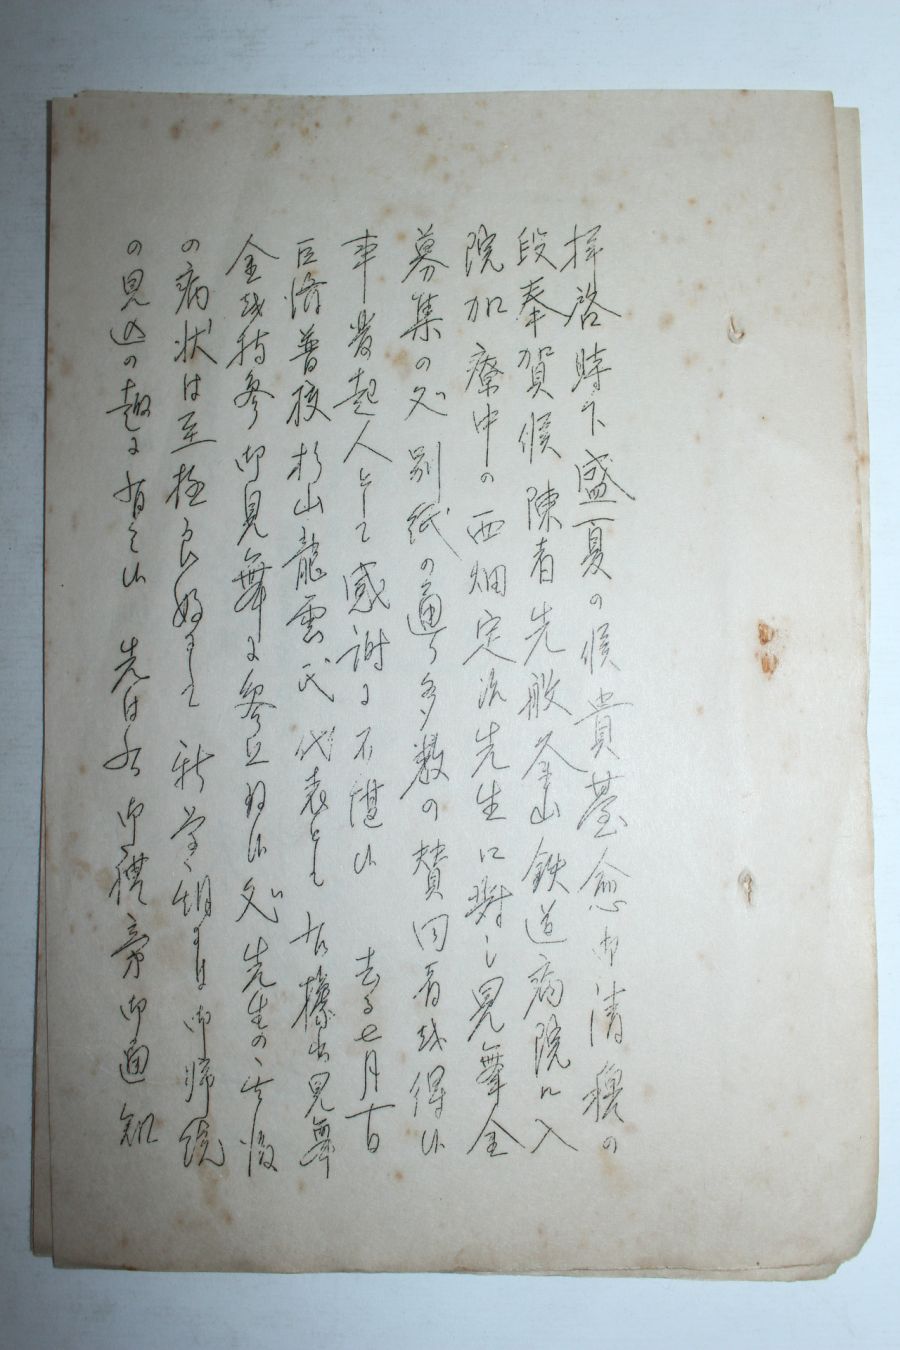 拝啓 時下盛夏の候貴台愈御清穆の
段奉賀候 陳者先般釜山鉄道病院に入
院加療中の西畑定次先生に対し見舞金
募集の処別紙の通り多数の賛同者を得候
事発起人として感謝に不堪候 去る七月十日
巨済普校杉山龍雲氏代表とし右標出見舞
金を持参御見舞に参上致候処先生の其後
の病状は至極良好にして新学期には御帰院
の見込の趣に有之候 先は右御礼旁御通知